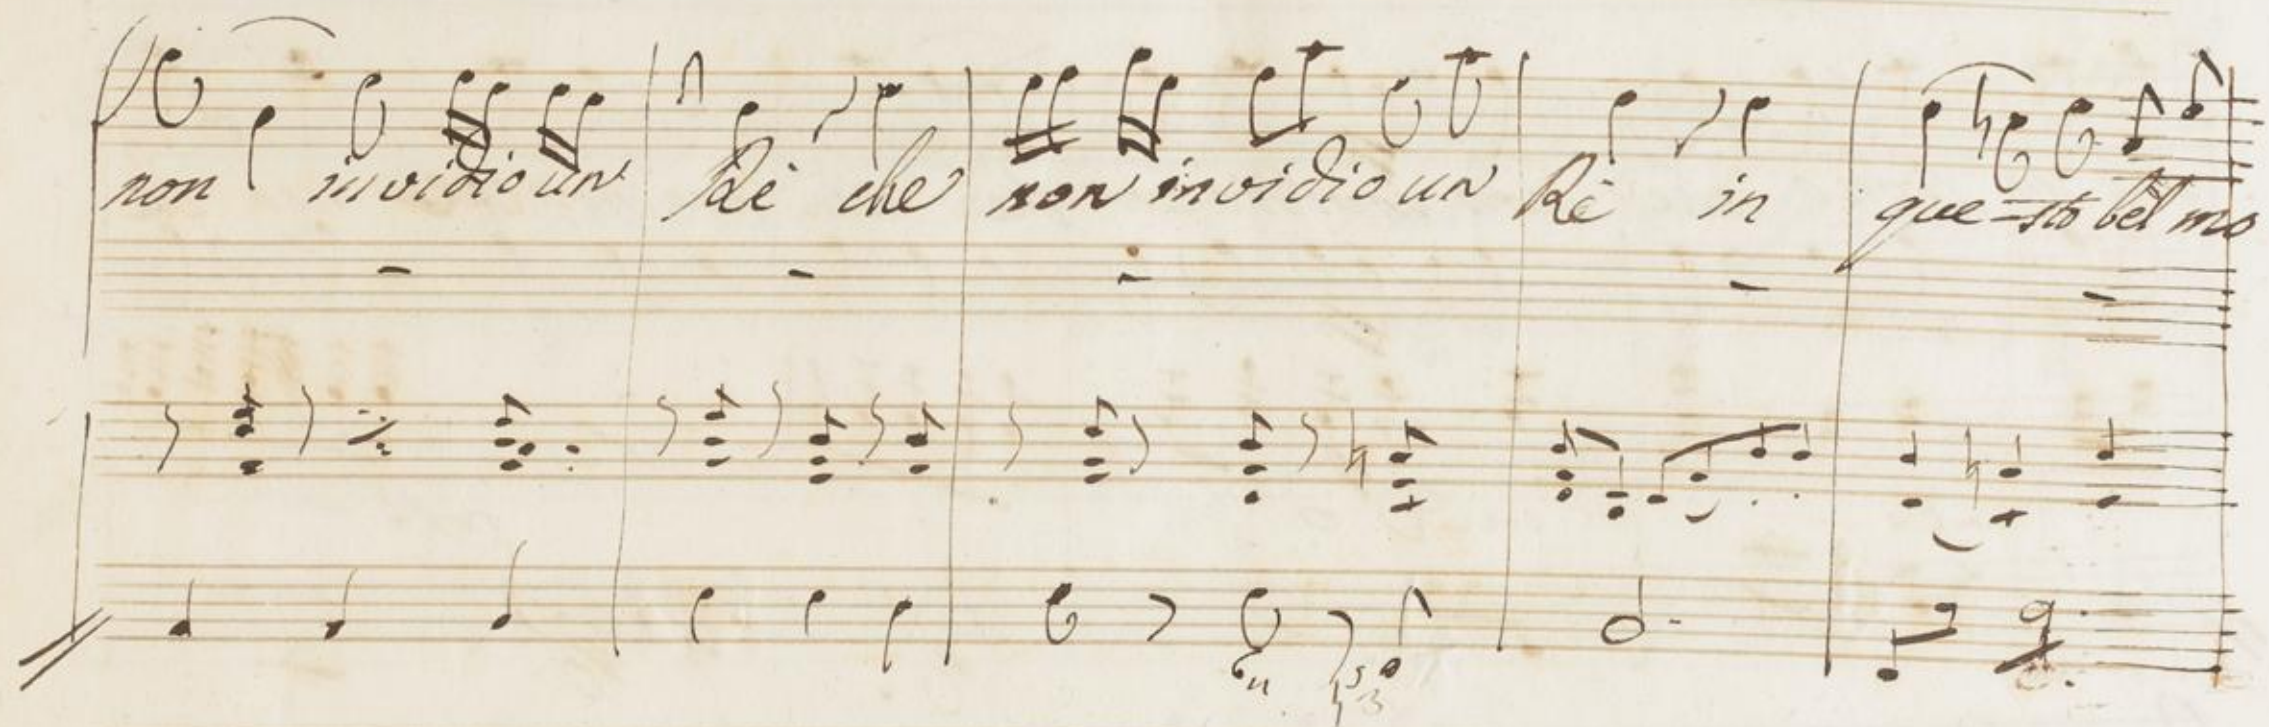 non invidio un Rè che non invidio un Rè in que-sto bel mo